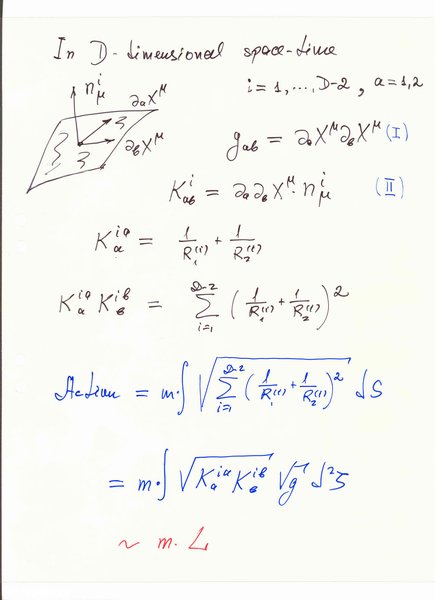 In D-dimensional space-time
i = 1, ..., D-2 , a = 1,2
n^i_μ
∂_a X^μ
∂_b X^μ
ξ ξ ξ
g_ab = ∂_a X^μ ∂_b X^μ (I)
K^i_ab = ∂_a ∂_b X^μ · n^i_μ (II)
K^{ia}_a = 1/R_1^{(i)} + 1/R_2^{(i)}
K^{ia}_a K^{ib}_b = Σ_{i=1}^{D-2} ( 1/R_1^{(i)} + 1/R_2^{(i)} )^2
Action = m·∫ √( Σ_{i=1}^{D-2} ( 1/R_1^{(i)} + 1/R_2^{(i)} )^2 ) dS
= m·∫ √( K^{ia}_a K^{ib}_b ) √g d^2ξ
~ m·L